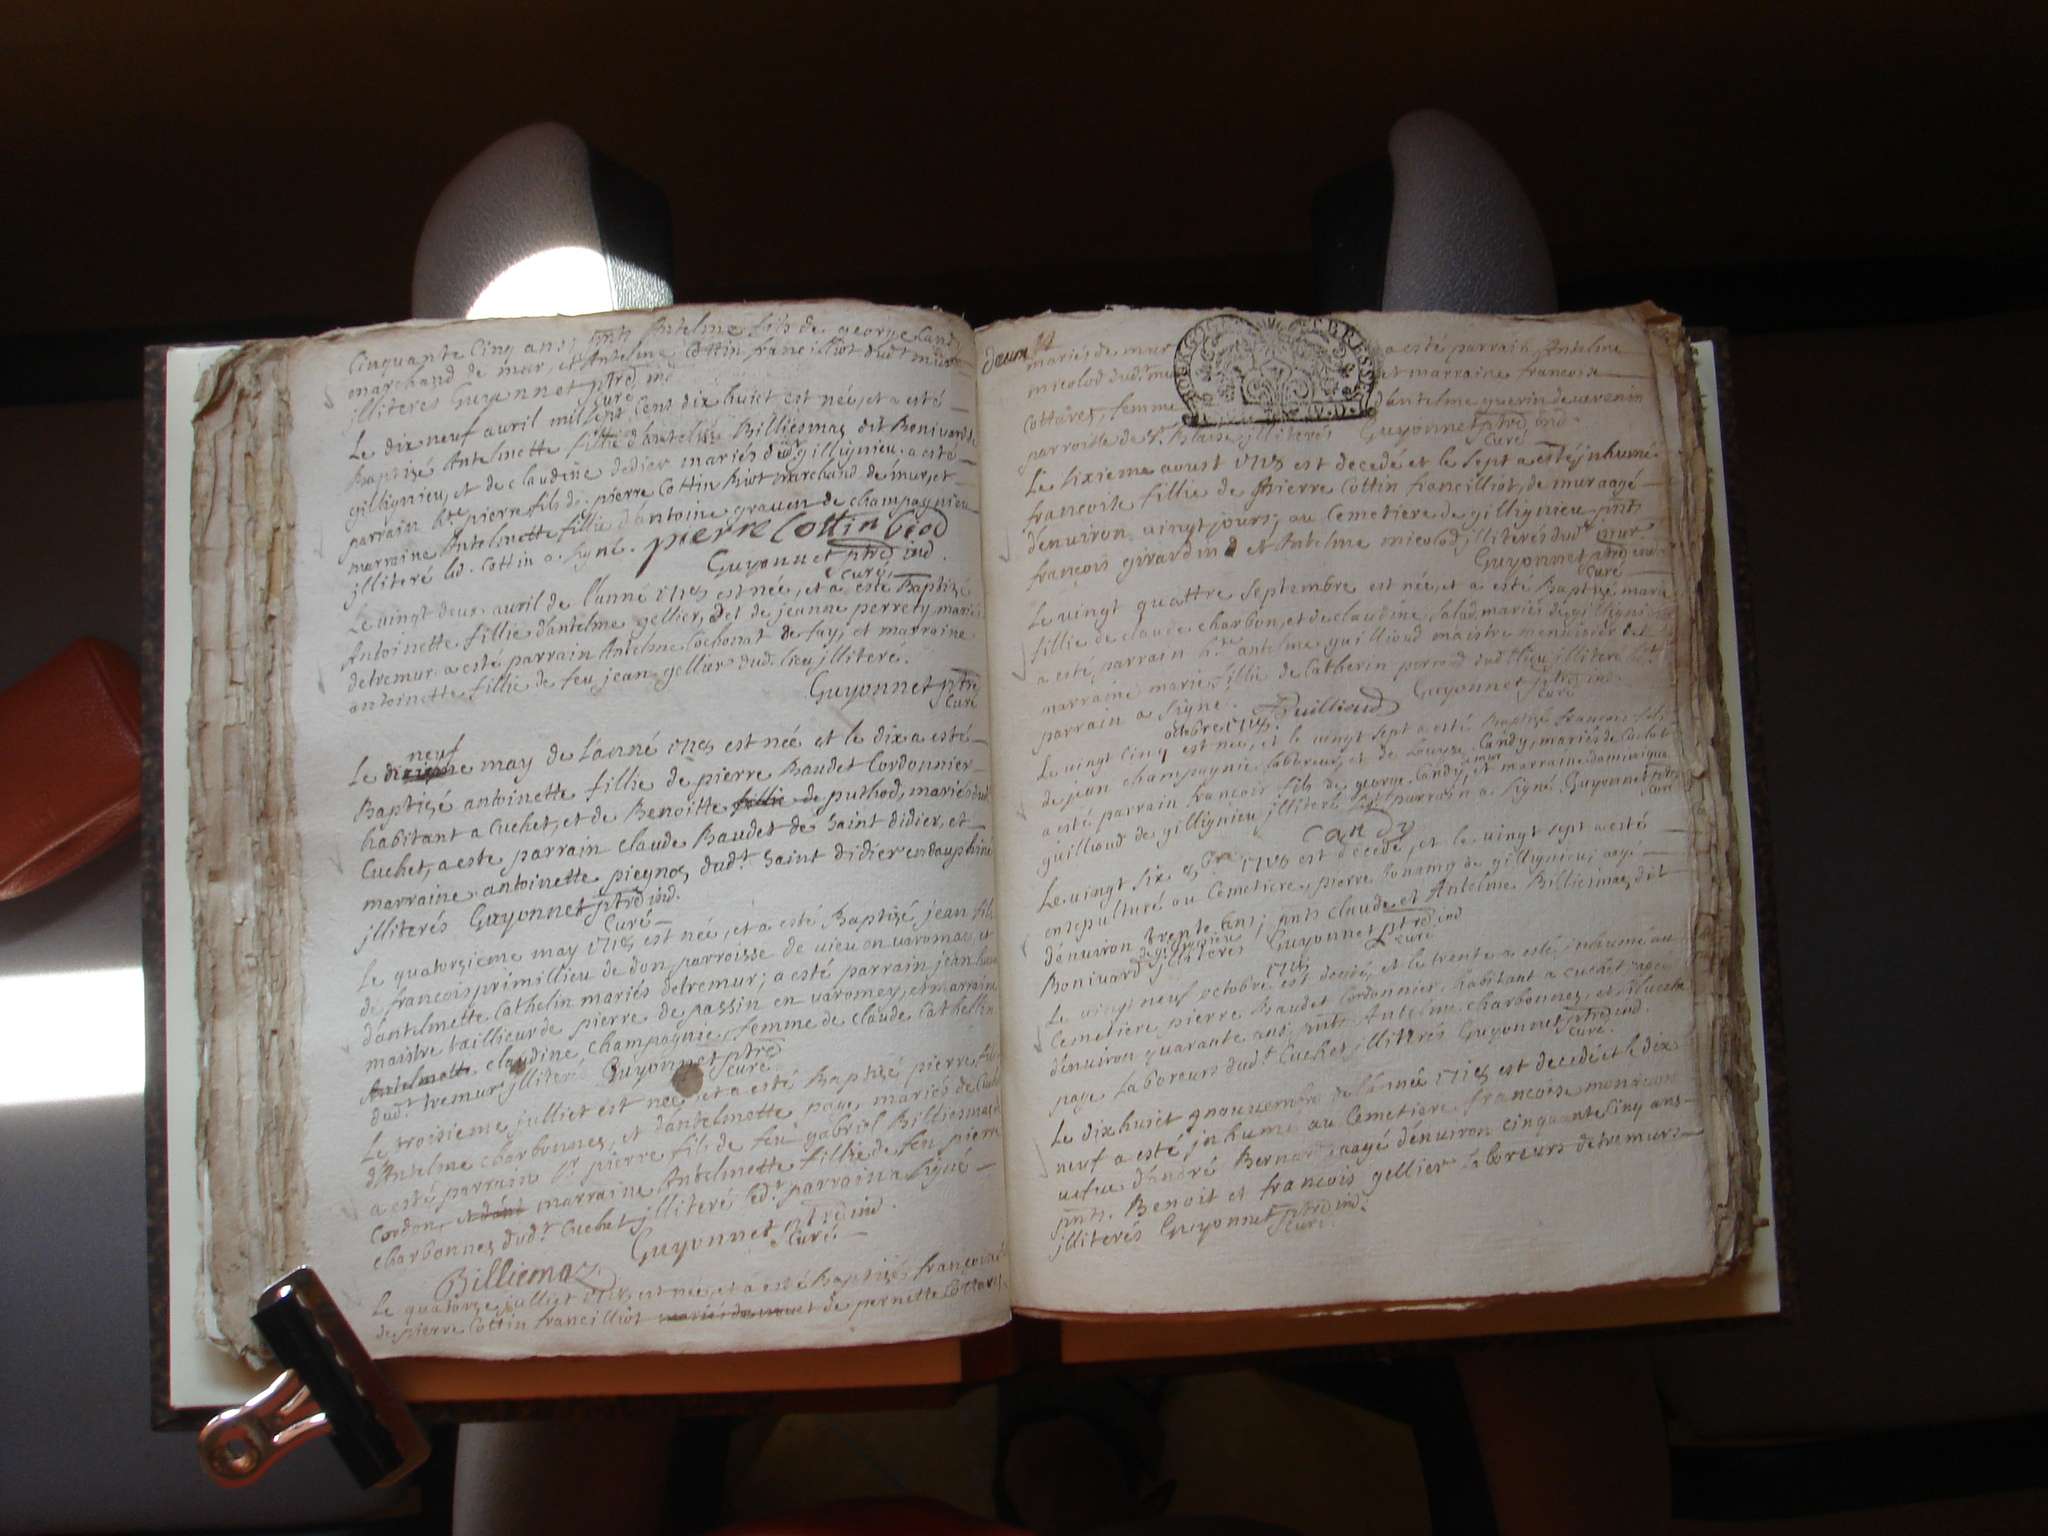 Cinquante Cinq ans, pnts Antelme fils de george Cand
marchand de mur, et Antelme Cottin francilliot dud.t mur
illiteres Guyonnet ptre ind
curé
Le dix neuf auril mil sept Cens dix huict est née, et a esté
Baptizé Antelmette fillie d'antelme Billiemaz dit Bonivard de
gillignieu, et de claudine dedier mariés dud.t gillignieu. a esté
parrain h.te pierre fils de pierre Cottin biot marchand de mur, et
marraine Antelmette fillie d'antoine grauen de champagnieu
illiteré led. Cottin a signé. pierre Cottin biod
Guyonnet ptre ind.
curé
Le vingt deux auril de l'anné 1718 est née, et a esté Baptizé
Antoinette fillie d'antelme gellier, et de jeanne perrety mariés
detremur. a esté parrain Antelme Cochonat de fay, et marraine
antoinette fillie de feu jean gellier dud. lieu illiteré.
Guyonnet ptre
Curé
neuf
Le may de l'anné 1718 est née et le dix a esté
Baptizé antoinette fillie de pierre Baudet Cordonnier
habitant a Cuchet, et de Benoitte fillie de puthod, mariés dud
Cuchet, a este parrain claude Baudet de Saint didier, et
marraine antoinette pieynoz dud.t Saint didier en dauphiné
illiterés Guyonnet ptre ind.
Curé
Le quatorzieme may 1718 est née, et a esté Baptizé jean fils
de françois primillieu de don, parroisse de vieu en varomay, et
d'antelmette Cathelin mariés detremur; a esté parrain jean
maistre taillieur de pierre de passin en varomey, et marraine
Antelmette claudine champagnie, femme de claude Cathelin
dud.t tremur illiteré Guyonnet ptre
curé
Le troisieme julliet est née, et a esté Baptizé pierre fils
d'Antelme charbonnez, et d'antelmette page, mariés de Cuchet
a esté parrain S.r pierre fils de feu gabriel Billiemaz
Cordon, marraine Antelmette fillie de feu pierre
charbonnez dud.t Cuchet illiteré led.t parrain a signé
Guyonnet ptre ind.
Curé.
Billiemaz
Le quatorze julliet est née, et a esté Baptizé françoise
de pierre Cottin francilliot et de pernette Cottarez
mariés de mur a esté parrain Antelme
micolod dud.t mur et marraine francoise
Cottarez, femme d'antelme guerin de uerenin
parroisse de S.t Blaise illiterés Guyonnet ptre ind.
Curé
BOURG BRESSE
Le sixieme aoust 1718 est decedé et le sept a esté inhumé
francoise fillie de pierre Cottin francilliot, de mur aagé
d'enuiron uingt jours, au Cemetiere de gillignieu pnts
françois girardin et Antelme micolod, illiterés dud.t mur.
Guyonnet ptre ind
Curé
Le vingt quattre septembre est née, et a esté Baptizé marie
fillie de claude charbon, et de claudine Salad mariés de gillignieu
a esté, parrain h.te antelme guillioud maistre mennisier et
marraine marie fillie de Catherin perrond dud.t lieu illiteré led.t
parrain a signé. Guillioud Guyonnet ptre ind
curé
octobre 1718.
Le vingt Cinq est née, et le vingt sept a esté Baptizé francois fils
de jean champagnie laboreur, et de Louyse Candy, mariés de Curlet
a esté parrain francois fils de george Candy, a mur et marraine dominique
guillioud de gillignieu illiteré led.t parrain a signé Guyonnet ptre
Curé
Candy
Le vingt six 8bre 1718 est decedé, et le vingt sept a esté
ensepulturé au Cemetiere, pierre bonamy de gillignieu, aagé
d'enuiron trente ans; pnts claude et Antelme Billiemaz dit
Bonivard de gillignieu illiteres Guyonnet ptre ind
Curé
1718
Le vingt neuf octobre est decedé, et le trente a esté inhumé au
Cemetiere pierre Baudet Cordonnier, habitant a Cuchet aagé
d'enuiron quarante ans, pnts Antelme charbonnez, et
page Laboreurs dud.t Cuchet illiterés Guyonnet ptre ind.
Curé.
Le dix huict nouuembre de l'anné 1718 est decedé et le dix
neuf a esté inhumé au Cemetiere francoise
uefue d'andré Bernard aagé d'enuiron cinquante Cinq ans
pnts. Benoit et francois gellier laboreurs detremurs
illiterés Guyonnet ptre ind.
Curé.